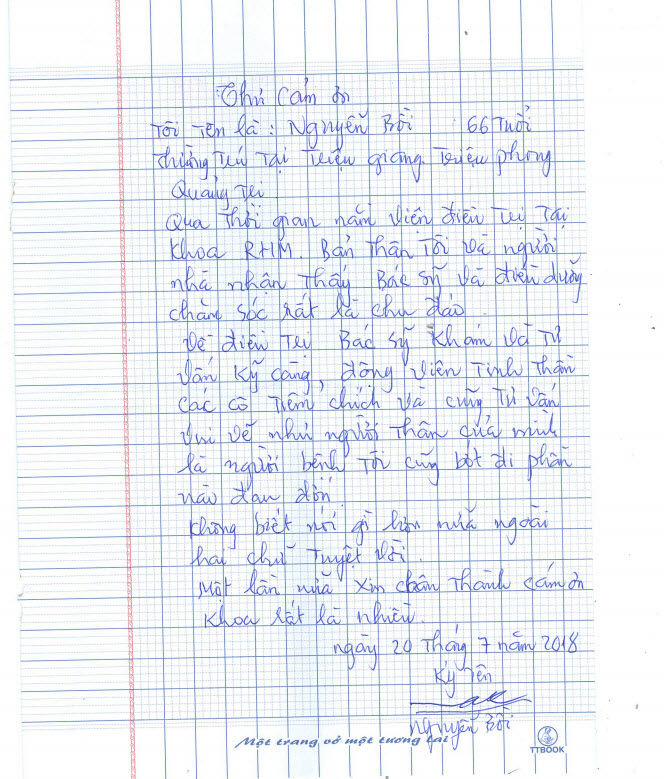 Thư cảm ơn
Tôi Tên là : Nguyễn Bồi 66 Tuổi
thường Trú Tại Triệu giang. Triệu phong
Quảng Trị
Qua Thời gian nằm viện điều Trị Tại
Khoa RHM. Bản Thân Tôi và người
nhà nhận Thấy Bác sỹ và điều dưỡng
chăm sóc rất là chu đáo.
Về điều Trị Bác sỹ Khám và Tư
vấn Kỹ càng, động viên Tinh Thần
Các cô Tiêm chích và cũng Tư vấn
vui vẽ như người Thân của mình
là người bệnh Tôi cũng bớt đi phần
nào đau đớn
không biết nói gì hơn nữa ngoài
hai chữ Tuyệt vời.
Một lần nữa xin chân Thành cám ơn
Khoa rất là nhiều.
ngày 20 Tháng 7 năm 2018
Ký Tên
Nguyễn Bồi
Một trang vở một tương lai
TTBOOK